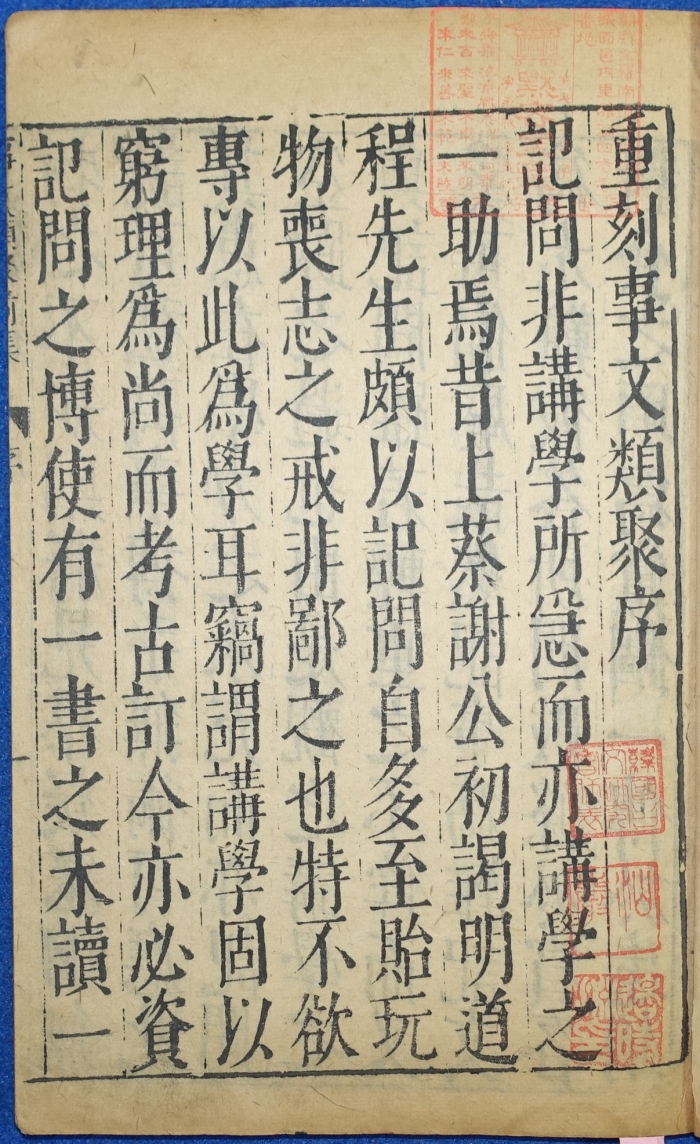 重刻事文類聚序
記問非講學所急而亦講學之
一助焉昔上蔡謝公初謁明道
程先生頗以記問自多至貽玩
物喪志之戒非鄙之也特不欲
專以此為學耳竊謂講學固以
窮理為尚而考古訂今亦必資
記問之博使有一書之未讀一